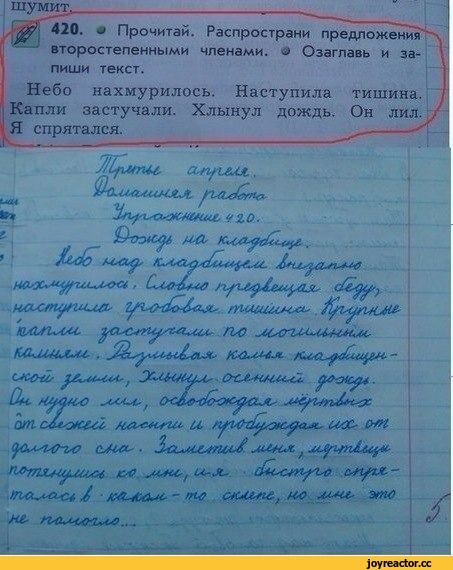 шумит.
420. Прочитай. Распространи предложения
второстепенными членами. Озаглавь и за-
пиши текст.
Небо нахмурилось. Наступила тишина.
Капли застучали. Хлынул дождь. Он лил.
Я спрятался.
Третье апреля.
Домашняя работа
Упражнение 420.
Дождь на кладбище.
Небо над кладбищем внезапно
нахмурилось. Словно предвещая беду,
наступила гробовая тишина. Крупные
капли застучали по могильным
камням. Размывая комья кладбищен-
ской земли, хлынул осенний дождь.
Он нудно лил, освобождая мёртвых
от свежей насыпи и пробуждая их от
долгого сна. Заметив меня, мертвецы
потянулись ко мне, и я быстро спря-
талась в каком-то склепе, но мне это
не помогло...
5
joyreactor.cc